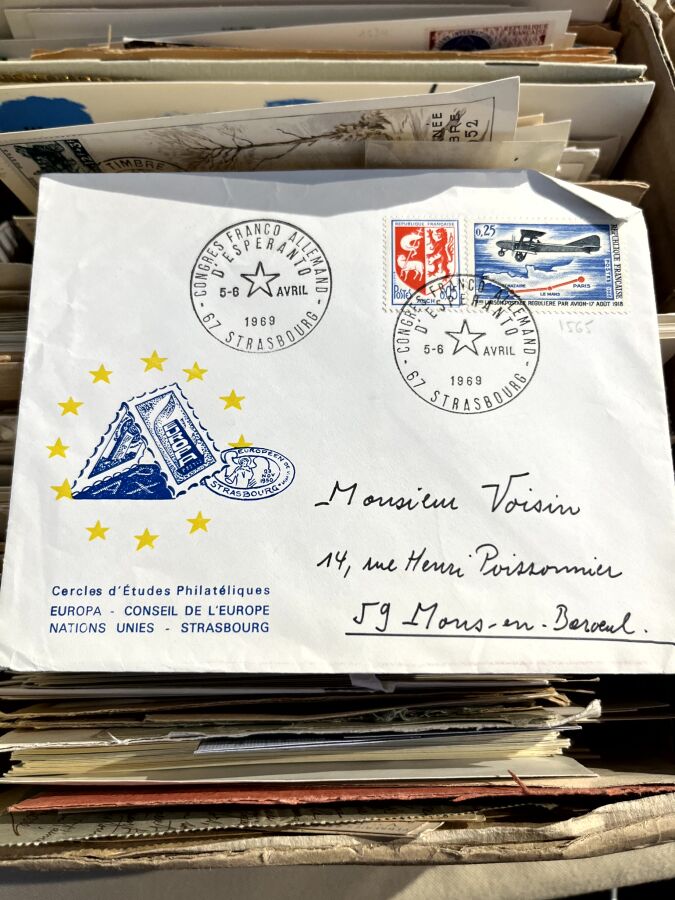 RÉPUBLIQUE
FRANÇAISE
TIMBRE
1952
CONGRES FRANCO ALLEMAND
D'ESPERANTO
5-6 AVRIL
1969
67 STRASBOURG
REPUBLIQUE FRANÇAISE
POSTES AUCH 0,05
0,25
REPUBLIQUE FRANÇAISE
POSTES
ST NAZAIRE
LE MANS
PARIS
1RE LIAISON POSTALE REGULIERE PAR AVION-17 AOUT 1918
CONGRES FRANCO ALLEMAND
D'ESPERANTO
5-6 AVRIL
1969
67 STRASBOURG
1565
STRASBOURG
Monsieur Voisin
14, rue Henri Poissonnier
59 Mons-en-Baroeul.
Cercles d'Études Philatéliques
EUROPA - CONSEIL DE L'EUROPE
NATIONS UNIES - STRASBOURG